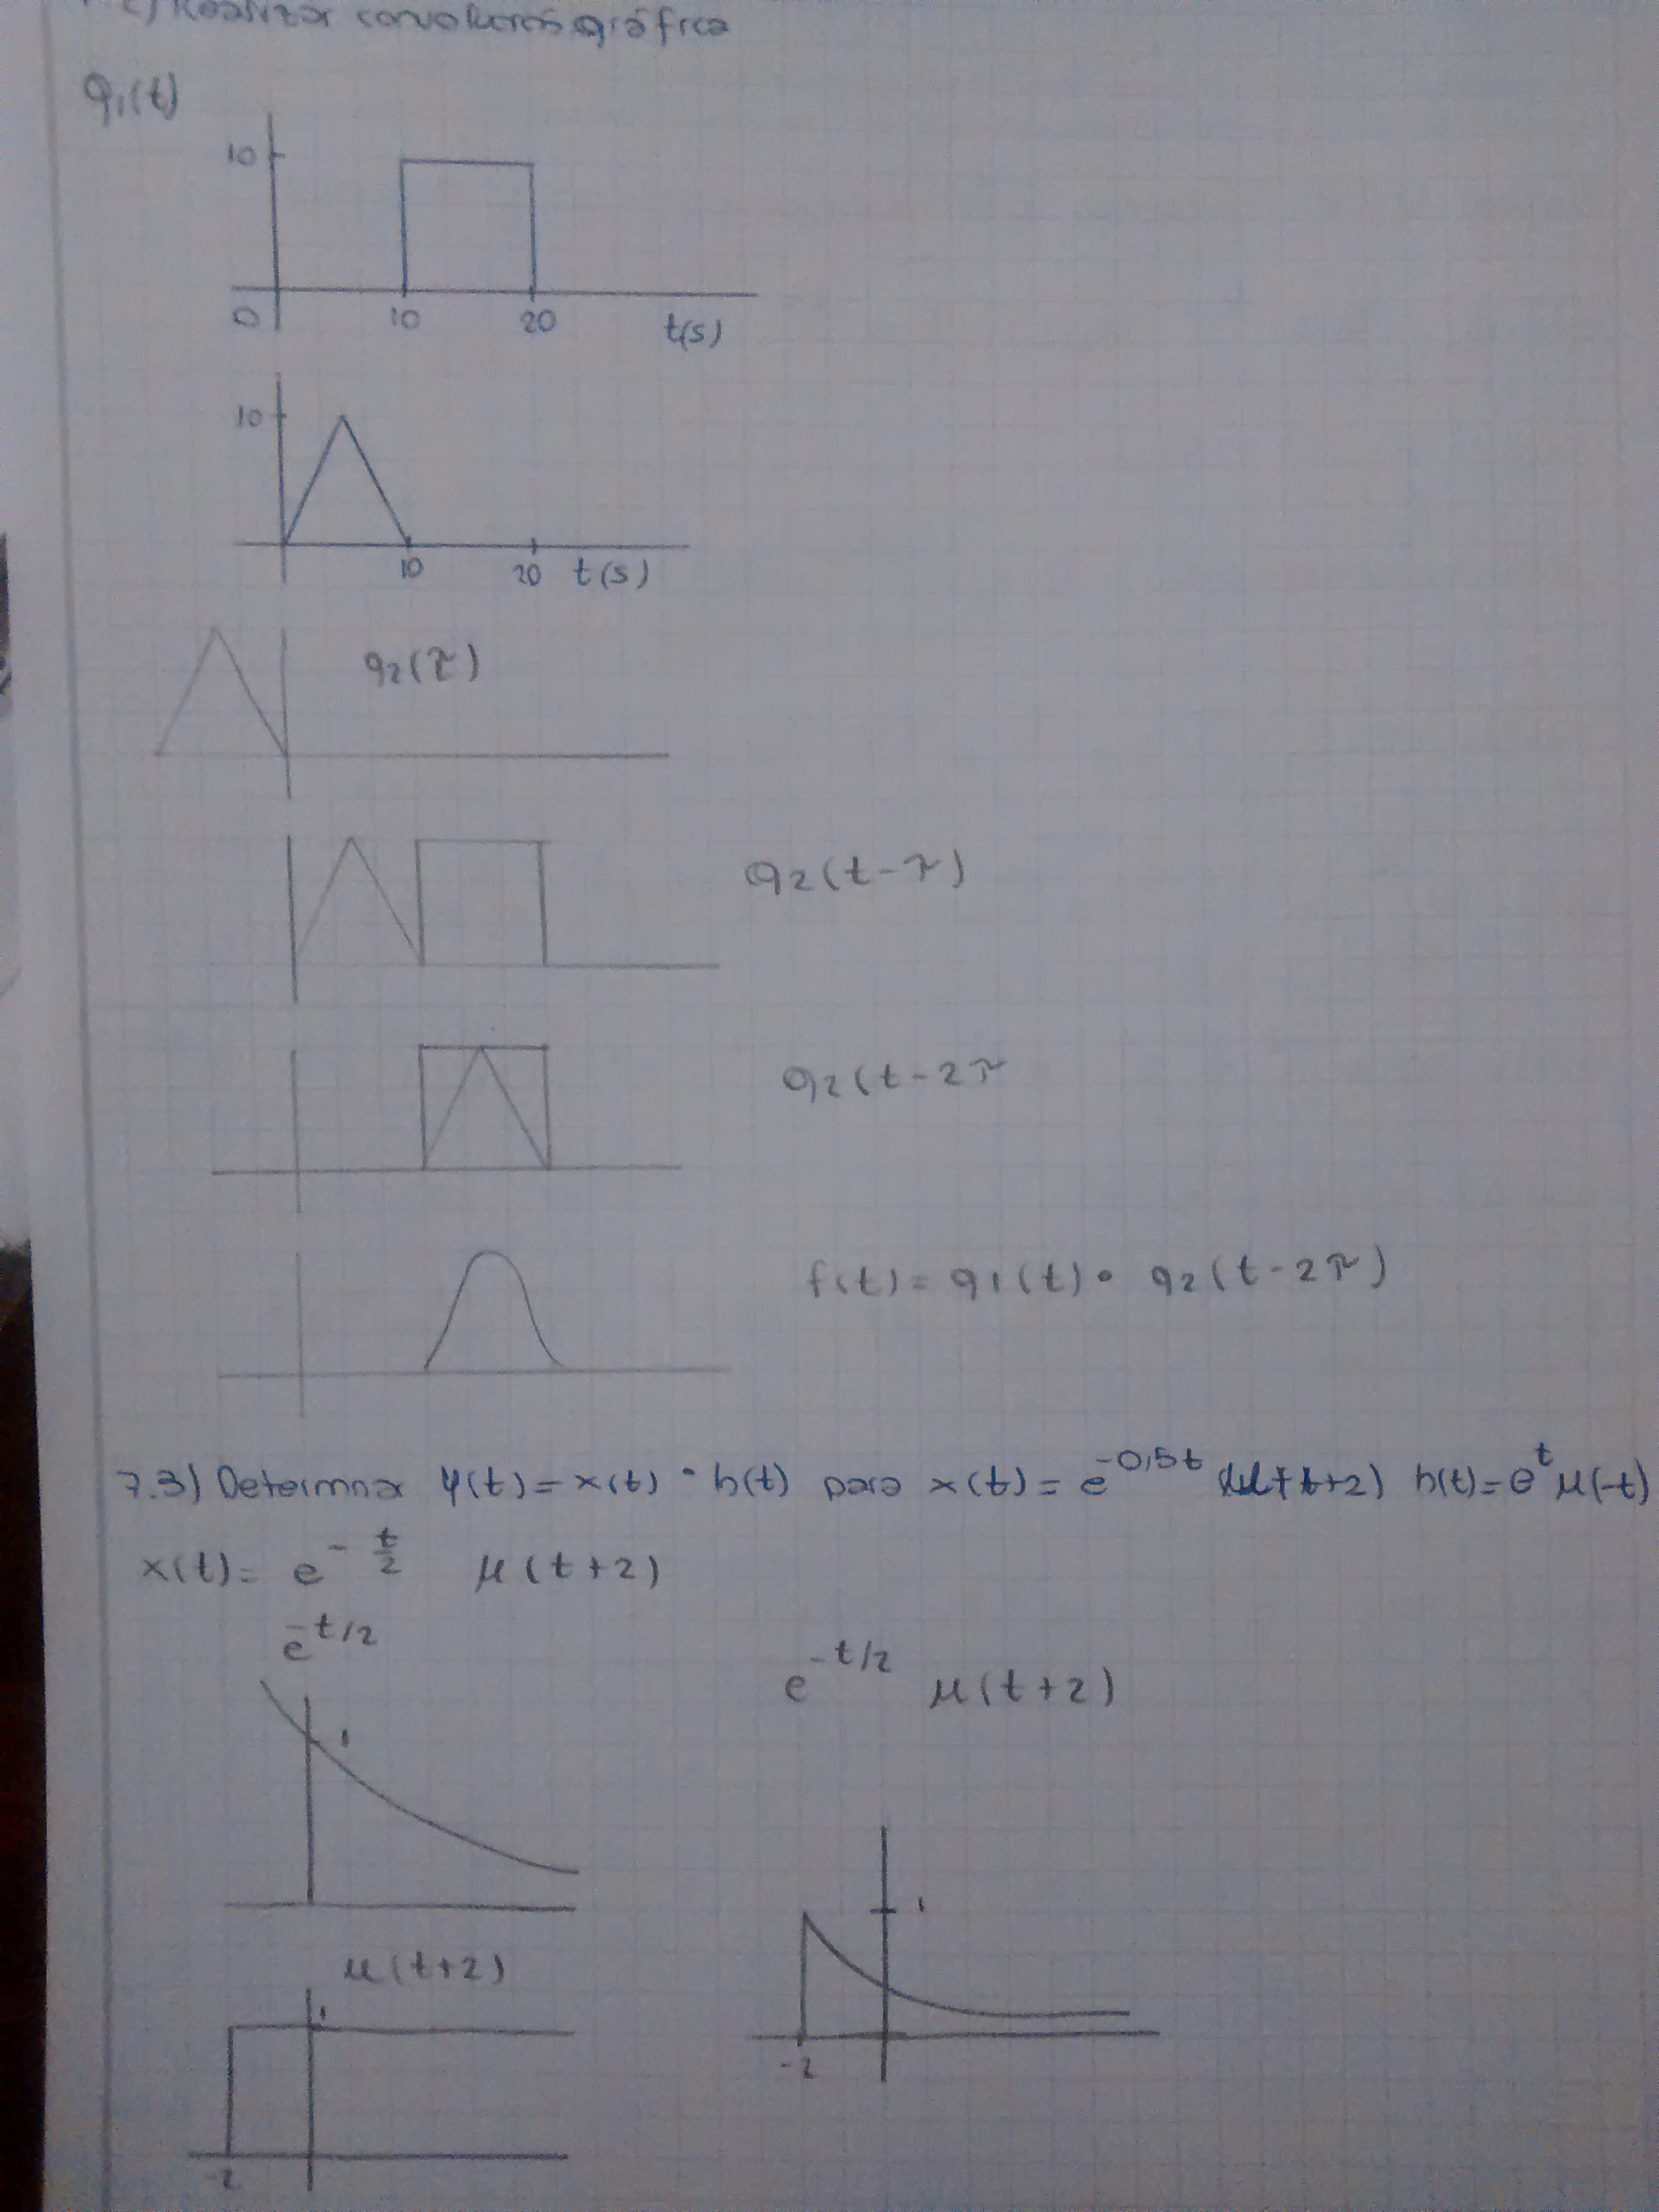 Realizar convolución gráfica
q1(t)
10
0 10 20 t(s)
10
10 20 t(s)
q2(τ)
q2(t-τ)
q2(t-2τ
f(t)= q1(t)• q2(t-2τ)
7.3) Determinar y(t)= x(t) • h(t) para x(t)= e^-0,5t (t+2) h(t)= e^t μ(-t)
x(t)= e^-t/2 μ(t+2)
e^-t/2
e^-t/2 μ(t+2)
1
1
μ(t+2)
1
-2
-2